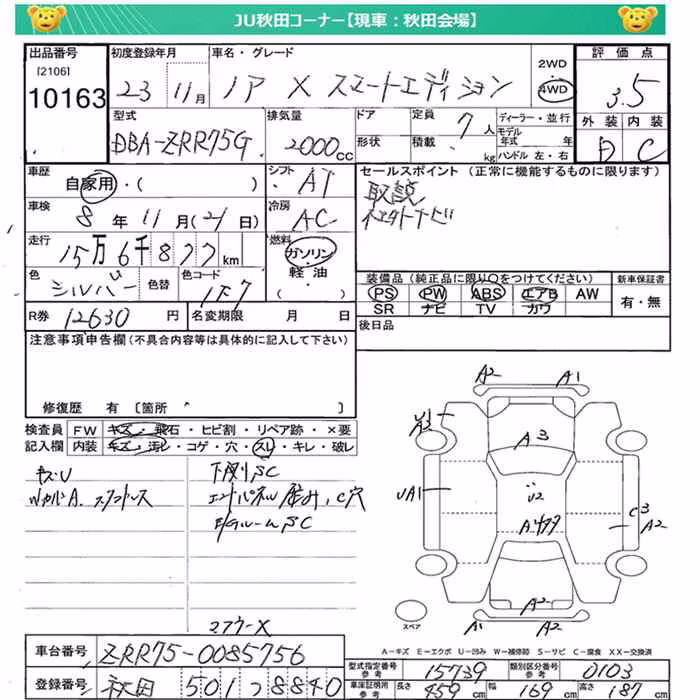 JU秋田コーナー【現車：秋田会場】
出品番号
[2106]
10163
初度登録年月
23 11月
車名・グレード
ノア X スマートエディション
2WD
4WD
評価点
3.5
外装 内装
C
型式
DBA-ZRR75G
排気量
2000cc
ドア
形状
定員
7人
積載
kg
ディーラー・並行
モデル年式 年
ハンドル 左・右
車歴
自家用・( )
シフト
AT
セールスポイント (正常に機能するものに限ります)
取説
車検
8年11月(21日)
冷房
AC
走行
15万6千877km
燃料
ガソリン
軽油
( )
色
シルバー
色替
色コード
1F7
装備品 (純正品に限り○をつけてください)
PS PW ABS エアB AW
SR ナビ TV カワ
新車保証書
有・無
R券
12630円
名変期限 月 日
後日品
注意事項申告欄(不具合内容等は具体的に記入して下さい)
修復歴 有 [箇所 ]
検査員記入欄
FW キズ・飛石・ヒビ割・リペア跡・×要
内装 キズ・汚レ・コゲ・穴・スレ・キレ・破レ
キズU
下廻りSC
A2 A1
A3
UA1
U2
C3
A2
A2
A2 A1
スペア
A－キズ E－エクボ U－凹み W－補修跡 S－サビ C－腐食 XX－交換済
車台番号
ZRR75-0085756
型式指定番号
参考
15739
類別区分番号
参考
0103
登録番号
秋田 501 8840
車庫証明用
参考
長さ
459cm
幅
169cm
高さ
187cm